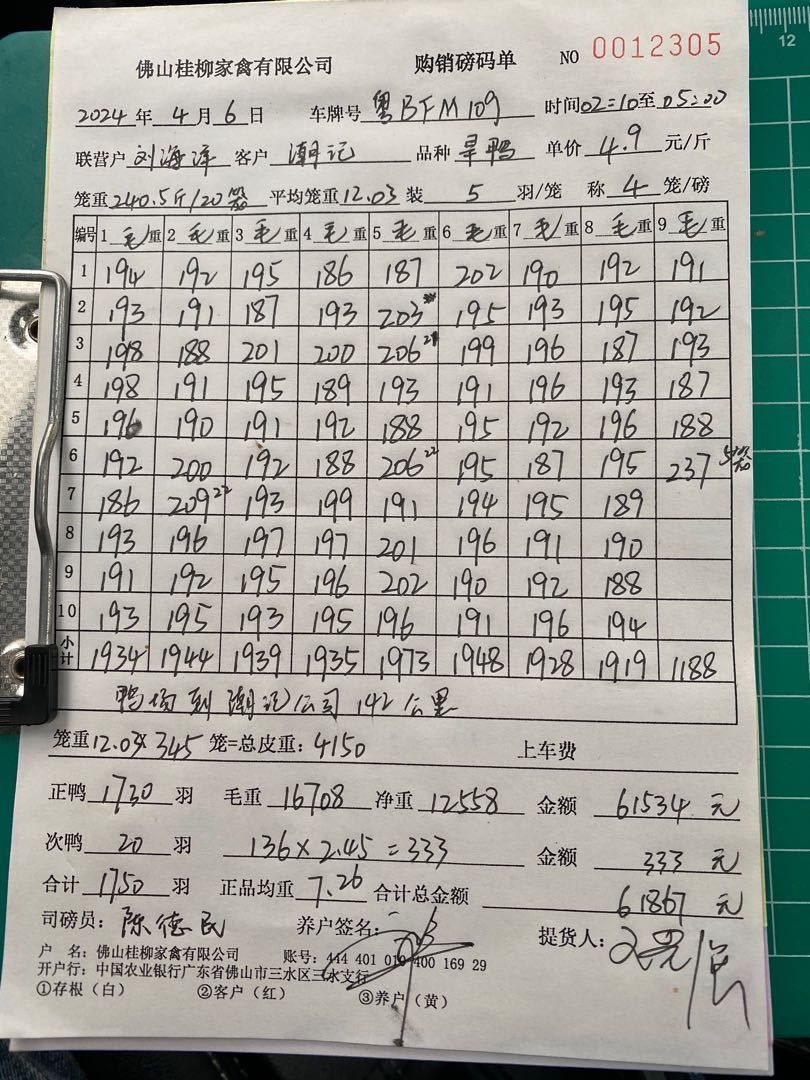 佛山桂柳家禽有限公司 购销磅码单 NO 0012305
2024年4月6日 车牌号 粤BFM109 时间02=10至05:00
联营户 刘海洋 客户 潮记 品种 旱鸭 单价 4.9 元/斤
笼重240.5斤/20笼 平均笼重12.03 装 5 羽/笼 称 4 笼/磅
编号 1毛重 2毛重 3毛重 4毛重 5毛重 6毛重 7毛重 8毛重 9毛重
1 194 192 195 186 187 202 190 192 191
2 193 191 187 193 203 195 193 195 192
3 198 188 201 200 206²¹ 199 196 187 193
4 198 191 195 189 193 191 196 193 187
5 196 190 191 192 188 195 192 196 188
6 192 200 192 188 206²² 195 187 195 237
7 186 209²² 193 199 191 194 195 189
8 193 196 197 197 201 196 191 190
9 191 192 195 196 202 190 192 188
10 193 195 193 195 196 191 196 194
小计 1934 1944 1939 1935 1973 1948 1928 1919 1188
鸭场到潮记公司142公里
笼重12.03×345笼=总皮重:4150 上车费
正鸭 1730 羽 毛重 16708 净重 12558 金额 61534 元
次鸭 20 羽 136×2.45=333 金额 333 元
合计 1750 羽 正品均重 7.26 合计总金额 61867 元
司磅员: 陈德民 养户签名: 提货人:
户 名: 佛山桂柳家禽有限公司 账号: 444 401 010 400 169 29
开户行: 中国农业银行广东省佛山市三水区三水支行
①存根(白) ②客户(红) ③养户(黄)
12